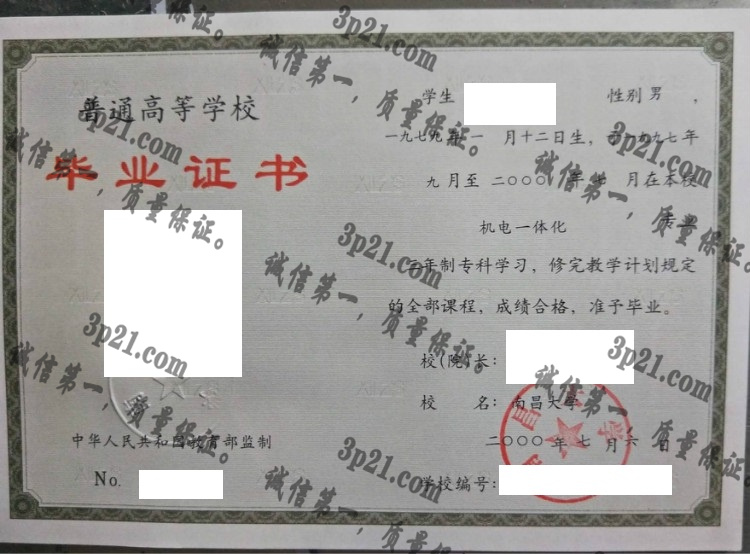 普通高等学校
毕业证书
中华人民共和国教育部监制
No.
学生 性别 男 ，
一九七九年一月十二日生，于一九九七年
九月至二〇〇〇年七月在本校
机电一体化 专业
三年制专科学习，修完教学计划规定
的全部课程，成绩合格，准予毕业。
校(院)长：
校 名：南昌大学
二〇〇〇年七月六日
学校编号：
3p21.com
诚信第一，质量保证。
3p21.com
诚信第一，质量保证。
3p21.com
诚信第一，质量保证。
3p21.com
诚信第一，质量保证。
3p21.com
诚信第一，质量保证。
3p21.com
诚信第一，质量保证。
3p21.com
诚信第一，质量保证。
3p21.com
诚信第一，质量保证。